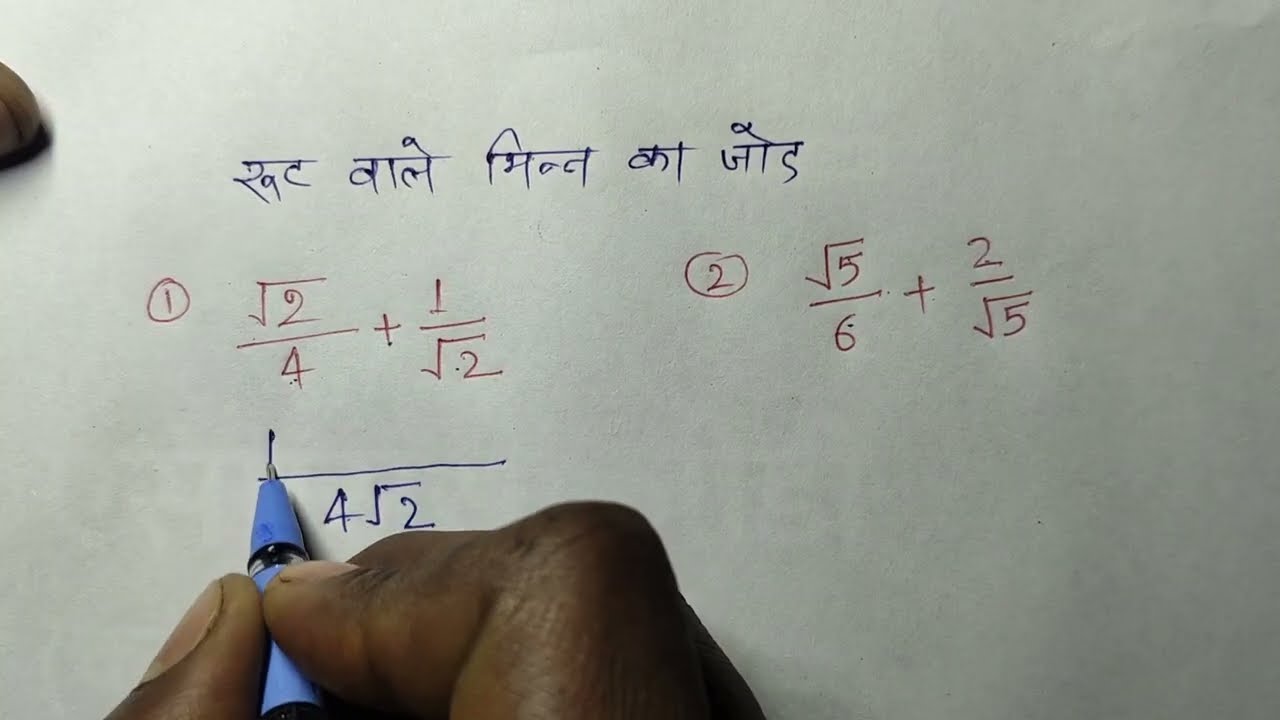 रूट वाले भिन्न का जोड
① √2/4 + 1/√2
② √5/6 + 2/√5
1
4√2